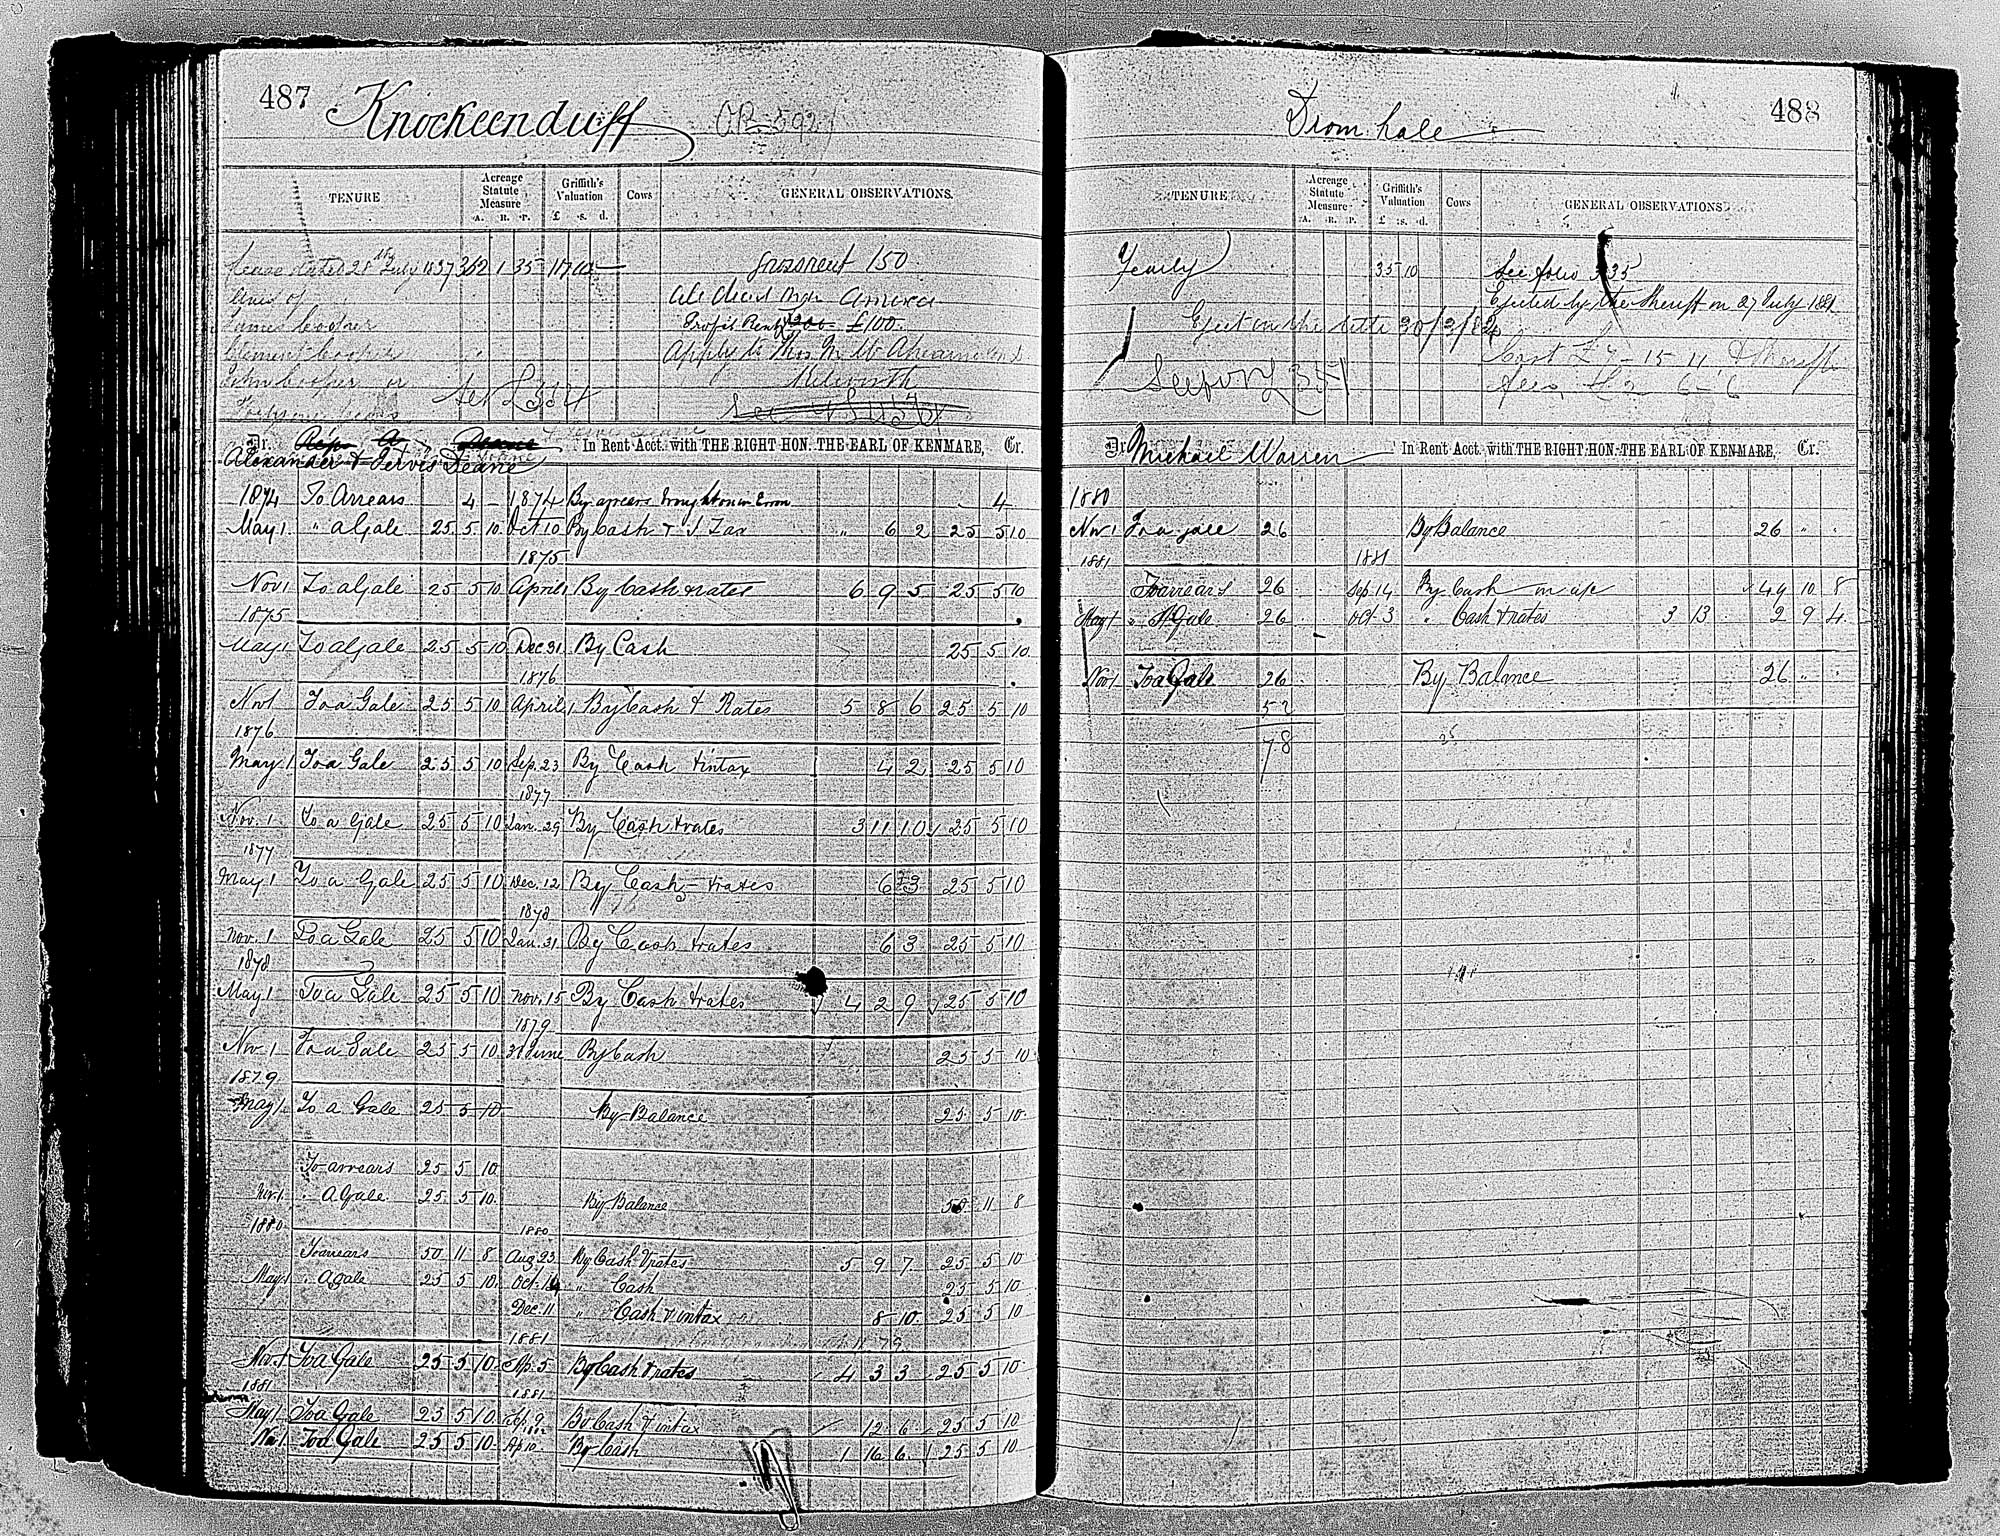 487 Knockeenduff OR 592
TENURE Acreage Statute Measure A. R. P. Griffith's Valuation £ s. d. Cows GENERAL OBSERVATIONS.
Lease dated 28th July 1837 362 1 35 117 10 — Gross rent 150
lives of
James Cooper Profit Rent £100.
Clement Cooper Apply to
John Cooper or
Dr. Alexander & Jervis Deane In Rent Acct. with THE RIGHT HON. THE EARL OF KENMARE, Cr.
1874 To Arrears 4 – 1874 By arrears brought on in Error 4
May 1 " a Gale 25 5 10 Oct 10 By Cash & I Tax " 6 2 25 5 10
1875
Nov 1 To a Gale 25 5 10 April 1 By Cash & rates 6 9 5 25 5 10
1875
May 1 To a Gale 25 5 10 Dec 31 By Cash 25 5 10
1876
Nov 1 To a Gale 25 5 10 April 1 By Cash & Rates 5 8 6 25 5 10
1876
May 1 To a Gale 25 5 10 Sep. 23 By Cash & intax 4 2 25 5 10
1877
Nov. 1 To a Gale 25 5 10 Jan. 29 By Cash & rates 3 11 10 25 5 10
1877
May 1 To a Gale 25 5 10 Dec. 12 By Cash & rates 6 3 25 5 10
1878
Nov. 1 To a Gale 25 5 10 Jan. 31 By Cash & rates 6 3 25 5 10
1878
May 1 To a Gale 25 5 10 Nov. 15 By Cash & rates 4 2 9 25 5 10
1879
Nov. 1 To a Gale 25 5 10 June By Cash 25 5 10
1879
May 1 To a Gale 25 5 10 By Balance 25 5 10
To arrears 25 5 10
Nov 1 " A Gale 25 5 10 By Balance 50 11 8
1880 1880
To arrears 50 11 8 Aug 23 By Cash & rates 5 9 7 25 5 10
May 1 " A gale 25 5 10 Oct. " Cash 25 5 10
Dec. 11 " Cash & intax 8 10 25 5 10
1881
Nov. 1 To a Gale 25 5 10 Ap. 5 By Cash & rates 4 3 3 25 5 10
1881 1881
May 1 To a Gale 25 5 10 Sep. 9 By Cash & intax 12 6 25 5 10
Nov 1 To a Gale 25 5 10 Ap 10 By Cash 1 16 6 25 5 10
Drom hale 488
TENURE Acreage Statute Measure A. R. P. Griffith's Valuation £ s. d. Cows GENERAL OBSERVATIONS
Yearly 35 10 See folio
Ejected by the Sheriff on 27 July 1881
Eject on the title
Cost £7 – 15 11 & Sheriffs
fees £2 6 – 6
Dr. Michael Warren In Rent Acct. with THE RIGHT HON. THE EARL OF KENMARE, Cr.
1880
Nov 1 To a gale 26 By Balance 26 " "
1881 1881
To arrears 26 Sep. 14 By Cash 49 10 8
May 1 " A Gale 26 Oct. 3 " Cash & rates 3 13 2 9 4
Nov 1 To a Gale 26 By Balance 26 " "
52
78